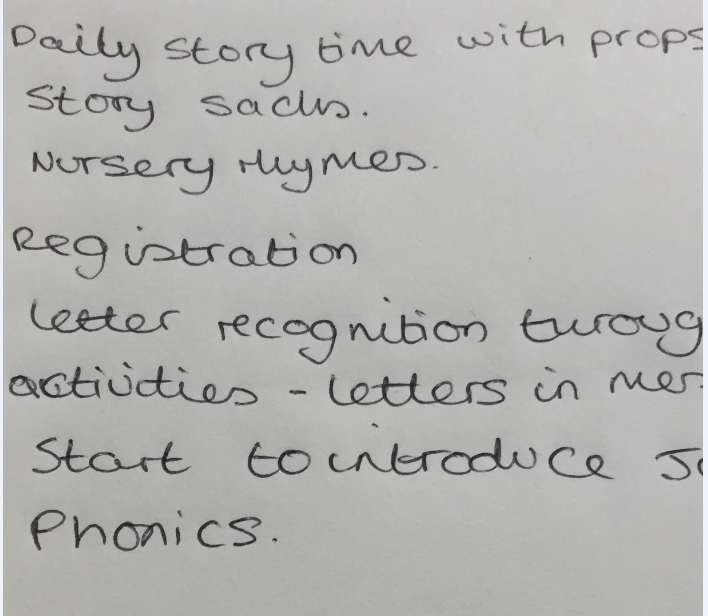 Daily story time with props
Story sacks.
Nursery rhymes.
Registration
letter recognition throug
activities - letters in
Start to introduce
Phonics.